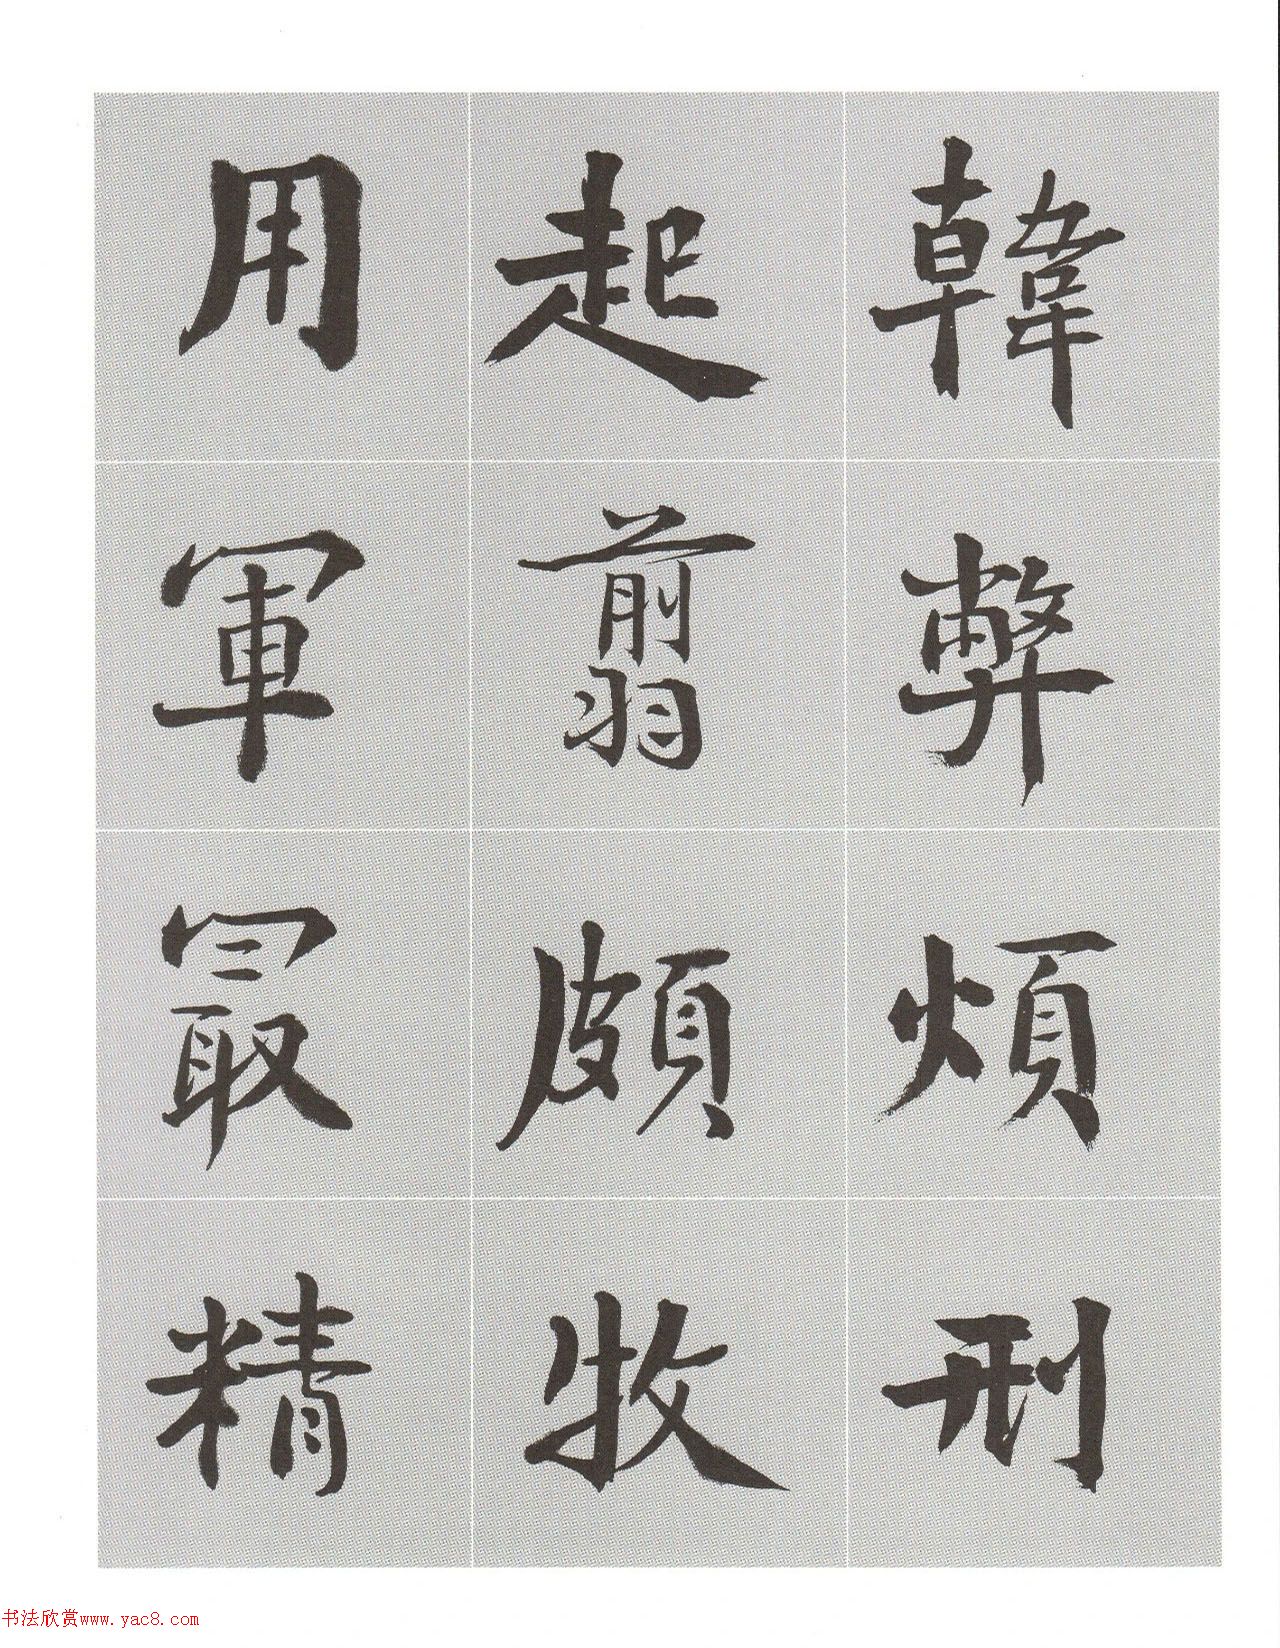 韓弊煩刑
起翦頗牧
用軍最精
书法欣赏www.yac8.com